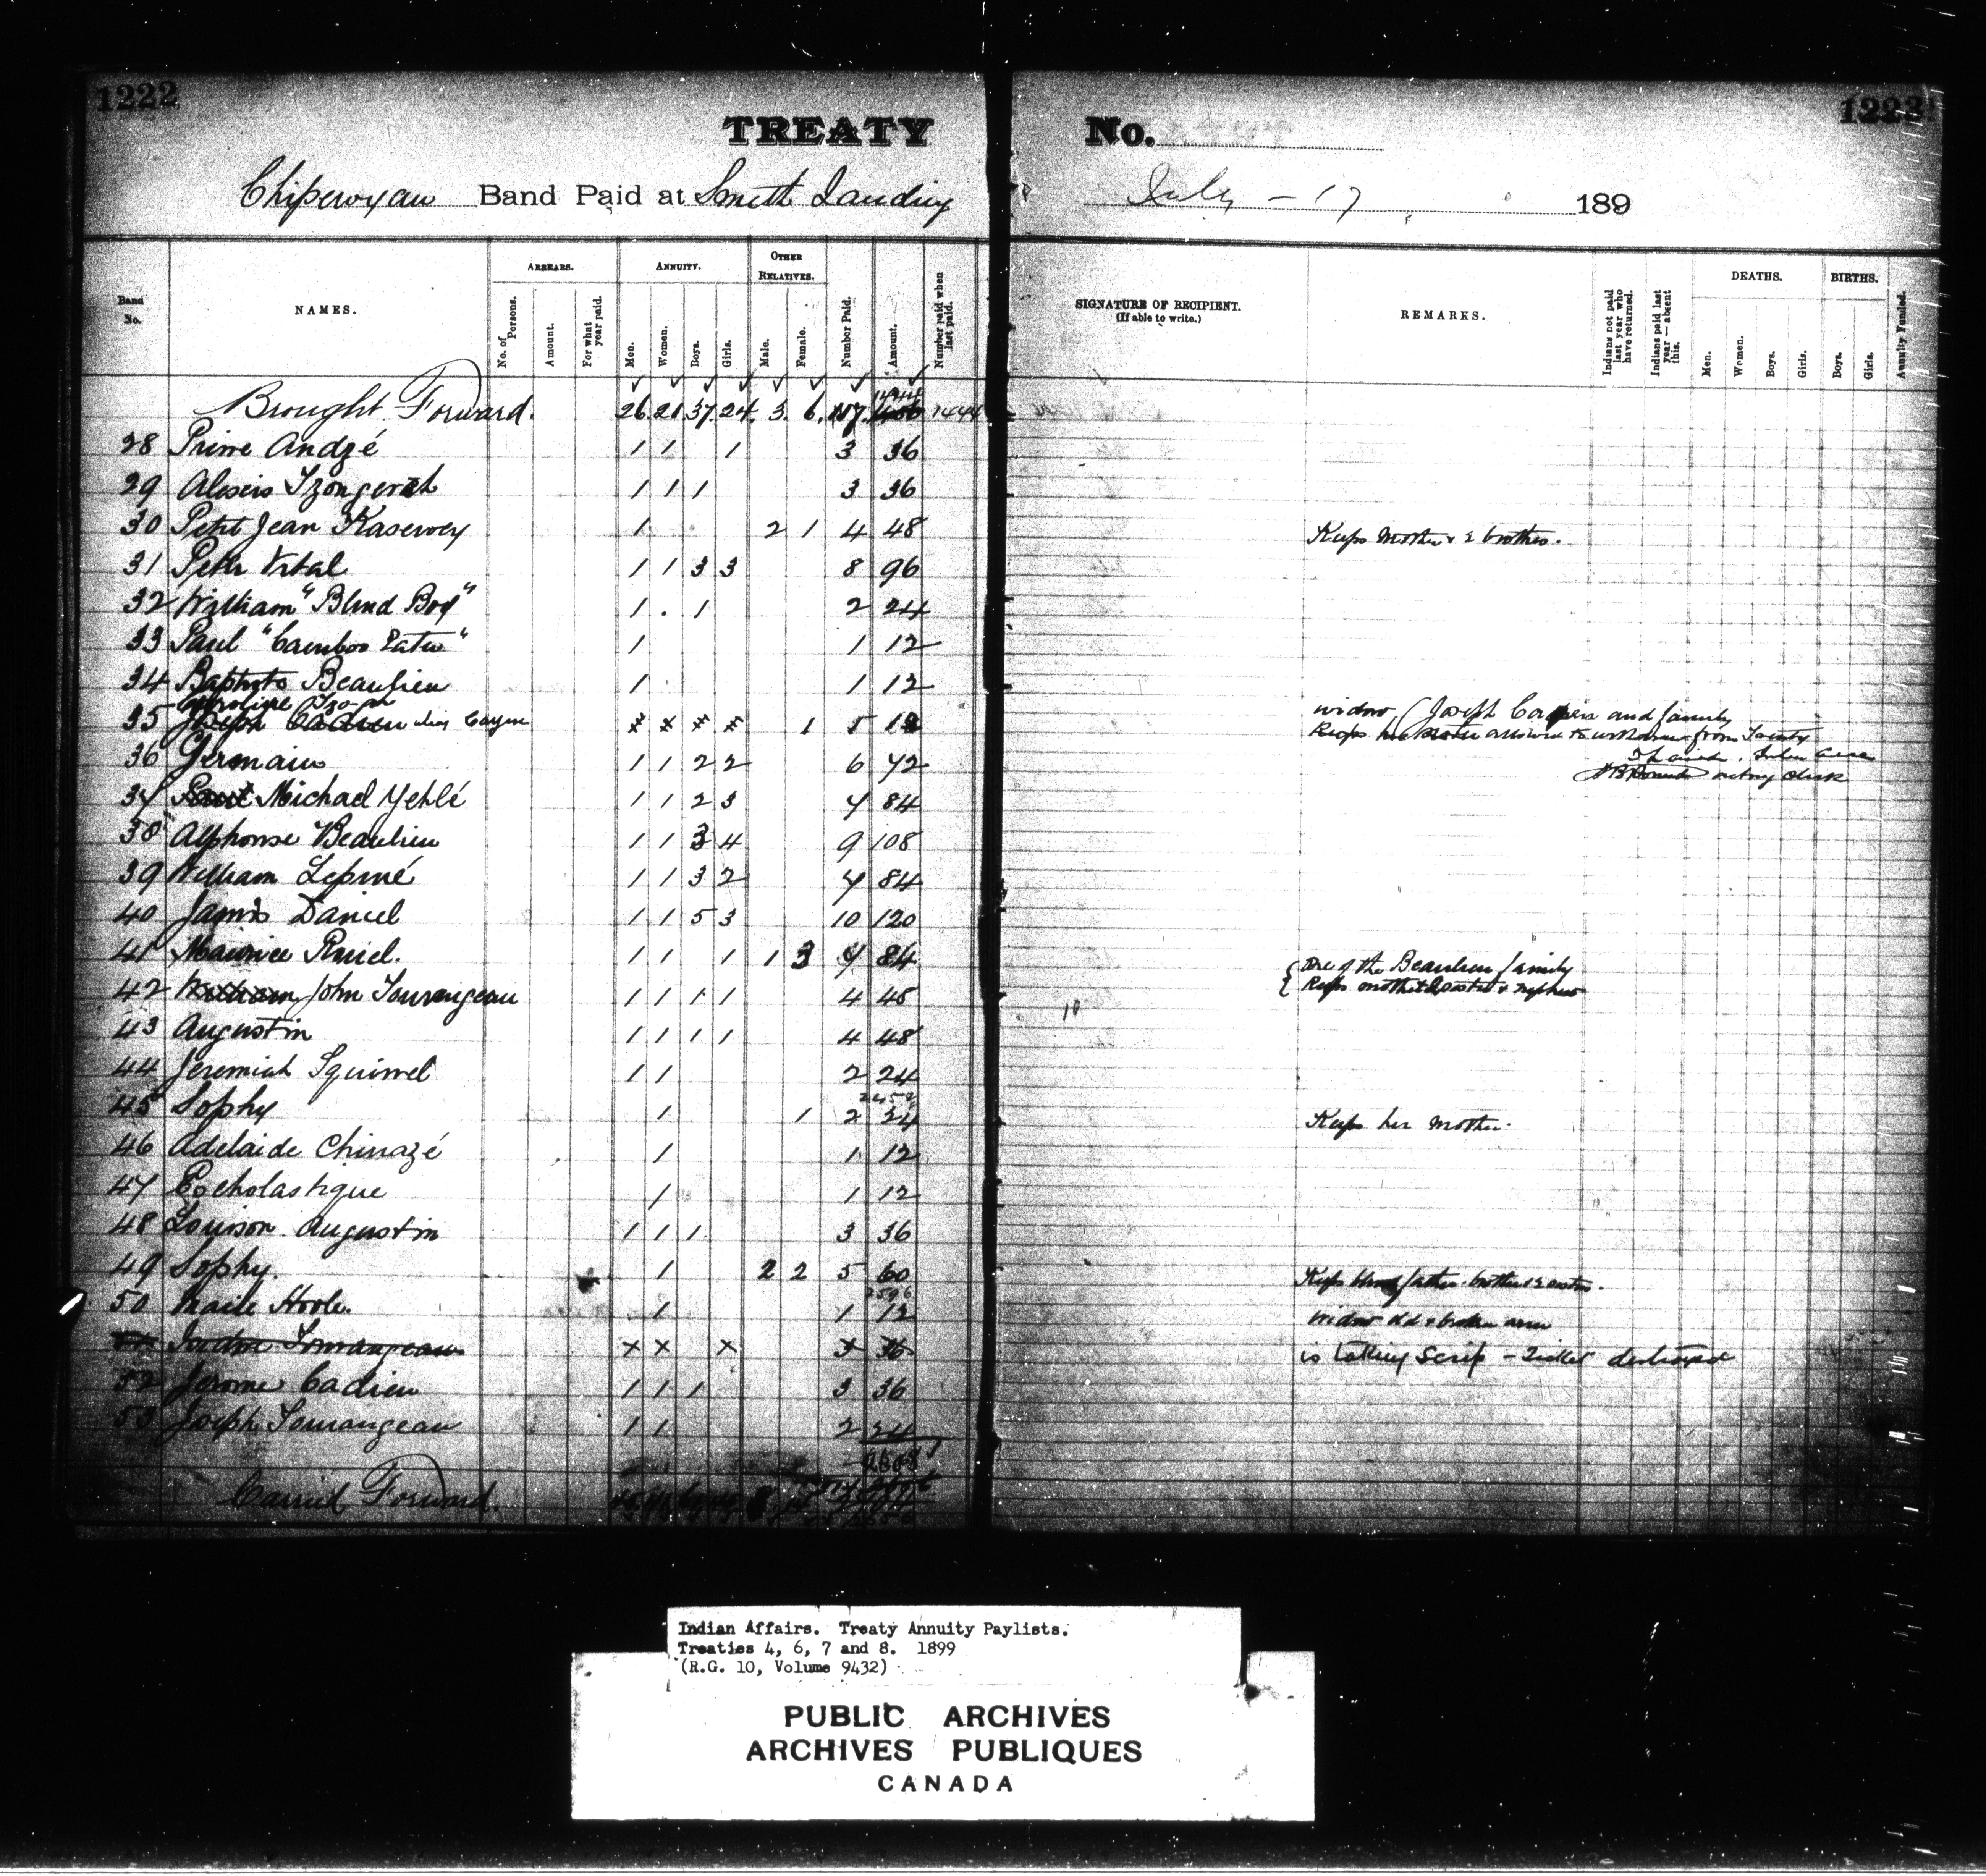 1222
1223
TREATY No.
Chipewyan Band Paid at Smith Landing July - 17 189
Band No.
NAMES.
ARREARS.
No. of Persons.
Amount.
For what year paid.
ANNUITY.
Men.
Women.
Boys.
Girls.
OTHER RELATIVES.
Male.
Female.
Number Paid.
Amount.
Number paid when last paid.
SIGNATURE OF RECIPIENT. (If able to write.)
REMARKS.
Indians not paid last year who have returned.
Indians paid last year—absent this.
DEATHS.
Men.
Women.
Boys.
Girls.
BIRTHS.
Boys.
Girls.
Annuity Funded.
Brought Forward. 26. 21. 37. 24. 3. 6. 117. 1444
28 Prime Andzé 1 1 1 3 36
29 Alexis 1 1 1 3 36
30 Petit Jean Kasewey 1 2 1 4 48 Keeps Mother & 2 brothers.
31 Petit Vital 1 1 3 3 8 96
32 William "Blind Boy" 1 . 1 2 24
33 Paul "Cariboo Eater" 1 1 12
34 Baptiste Beaulieu 1 1 12
Caroline
35 Joseph alias Cayen x x x x 1 5 12 widow, (Joseph and family
Keeps from Treaty
acting clerk
36 Germain 1 1 2 2 6 72
37 Michael Yehlé 1 1 2 3 7 84
38 Alphonse Beaulieu 1 1 3 4 9 108
39 William Lepiné 1 1 3 2 7 84
40 James Daniel 1 1 5 3 10 120
41 Maurice 1 1 1 1 3 7 84 One of the Beaulieu family
42 William John Tourangeau 1 1 1 1 4 48 Keeps mother & nephew
10
43 Augustin 1 1 1 1 4 48
44 Jeremiah Squirrel 1 1 2 24
45 Sophy 1 1 2 24 Keeps her Mother.
46 Adelaide Chinazé 1 1 12
47 Escholastique 1 1 12
48 Louison Augustin 1 1 1 3 36
49 Sophy. 1 2 2 5 60 Keeps father brother
2596
50 Marie Hoole. 1 1 12 Widow old & broken arm
Tourangeau x x x 3 36 is taking Scrip - Ticket destroyed
52 Jerome Cadieu 1 1 1 3 36
53 Joseph Tourangeau 1 1 2 24
2608
Carried Forward.
Indian Affairs. Treaty Annuity Paylists.
Treaties 4, 6, 7 and 8. 1899
(R.G. 10, Volume 9432)
PUBLIC ARCHIVES
ARCHIVES PUBLIQUES
CANADA